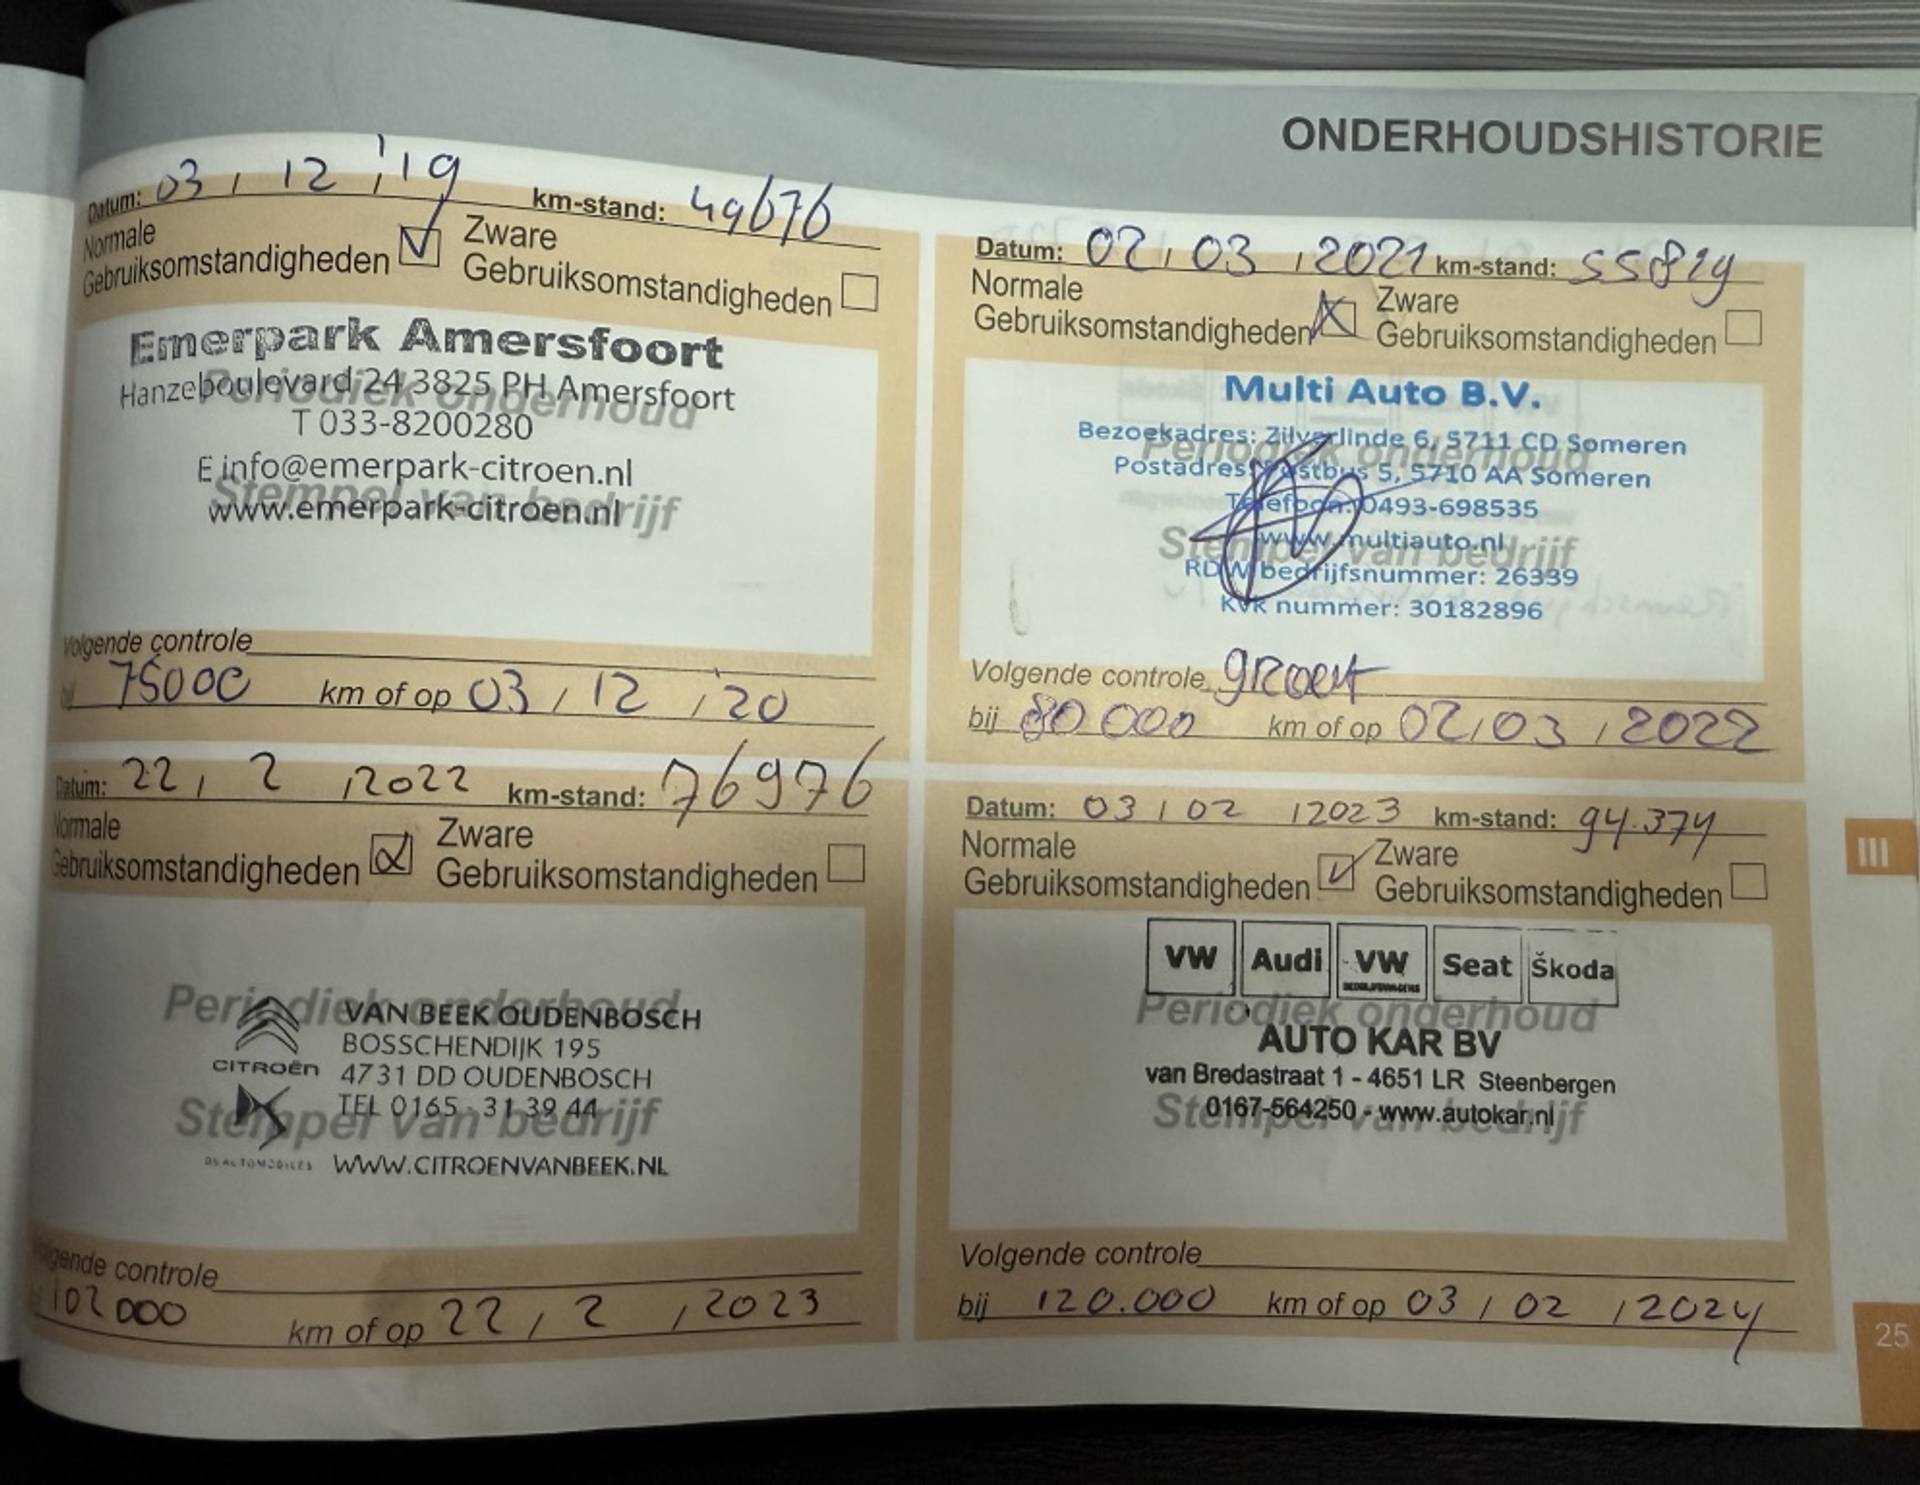 ONDERHOUDSHISTORIE
Datum: 03 / 12 / '19 km-stand: 49676
Normale Gebruiksomstandigheden Zware Gebruiksomstandigheden
Emerpark Amersfoort
Hanzeboulevard 24 3825 PH Amersfoort
Periodiek onderhoud
T 033-8200280
E info@emerpark-citroen.nl
Stempel van bedrijf
www.emerpark-citroen.nl
Volgende controle
75000 km of op 03 / 12 / '20
Datum: 02 / 03 / 2021 km-stand: 55819
Normale Gebruiksomstandigheden Zware Gebruiksomstandigheden
Multi Auto B.V.
Bezoekadres: Zilverlinde 6, 5711 CD Someren
Periodiek onderhoud
Postadres: Postbus 5, 5710 AA Someren
Telefoon: 0493-698535
www.multiauto.nl
Stempel van bedrijf
RDW bedrijfsnummer: 26339
KvK nummer: 30182896
Volgende controle groot
bij 80 000 km of op 02 / 03 / 2022
Datum: 22 / 2 / 2022 km-stand: 76976
Normale Gebruiksomstandigheden Zware Gebruiksomstandigheden
Periodiek onderhoud
VAN BEEK OUDENBOSCH
BOSSCHENDIJK 195
CITROËN 4731 DD OUDENBOSCH
TEL 0165 - 31 39 44
Stempel van bedrijf
DS AUTOMOBILES WWW.CITROENVANBEEK.NL
Volgende controle
102 000 km of op 22 / 2 / 2023
Datum: 03 / 02 / 2023 km-stand: 94.374
Normale Gebruiksomstandigheden Zware Gebruiksomstandigheden
VW Audi VW Seat Škoda
BEDRIJFSWAGENS
Periodiek onderhoud
AUTO KAR BV
van Bredastraat 1 - 4651 LR Steenbergen
0167-564250 - www.autokar.nl
Stempel van bedrijf
Volgende controle
bij 120.000 km of op 03 / 02 / 2024
III
25